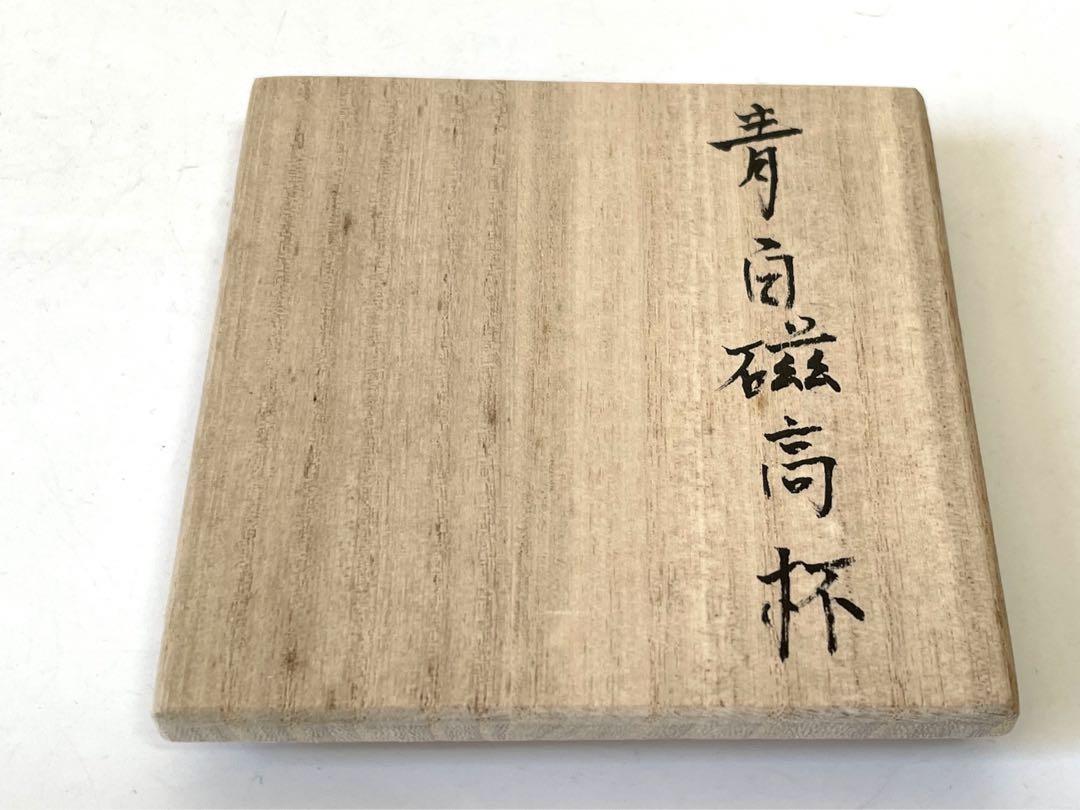 青白磁高杯